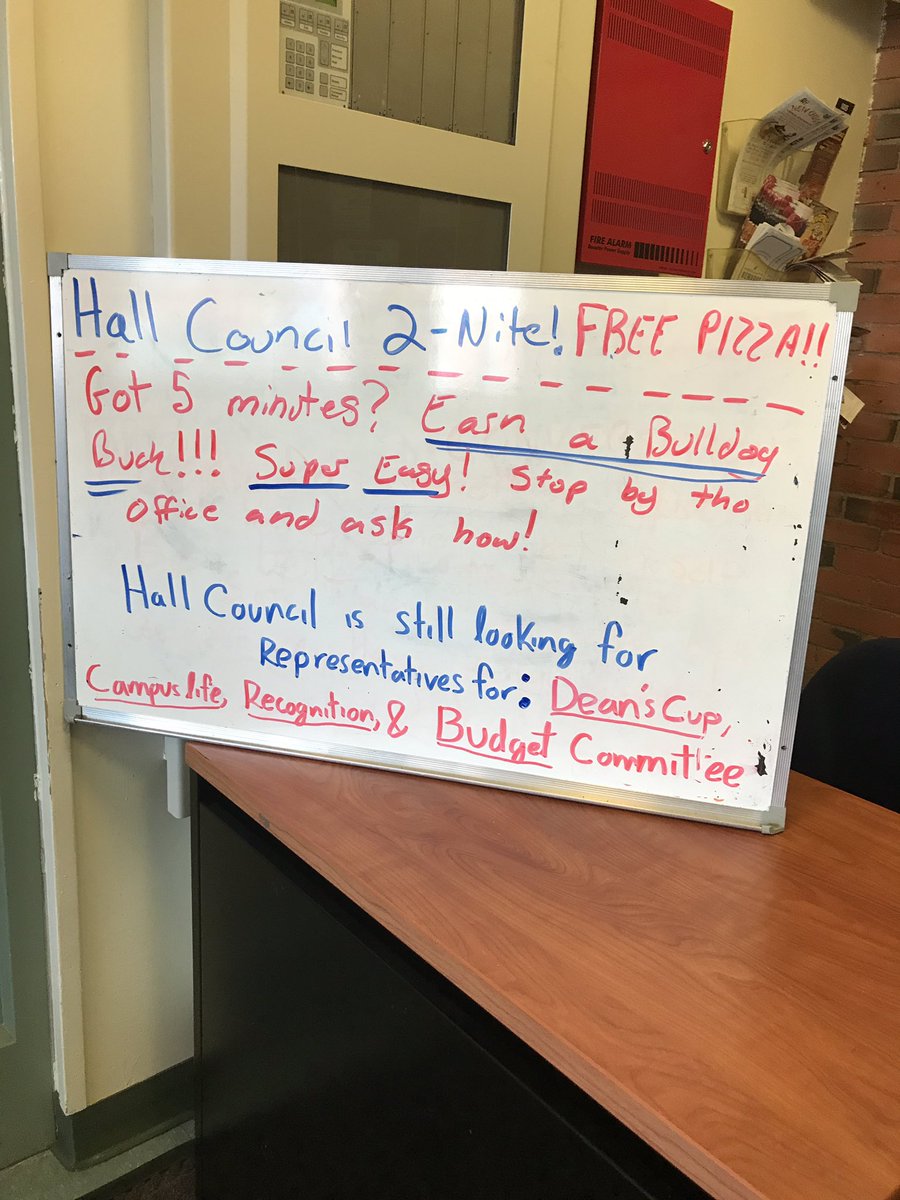 FIRE ALARM
Hall Council 2-Nite! FREE PIZZA!!
Got 5 minutes? Earn a Bulldog
Buck!!! Super Easy! Stop by the
Office and ask how!
Hall Council is still looking for
Representatives for: Dean's Cup,
Campus life, Recognition, & Budget Committee